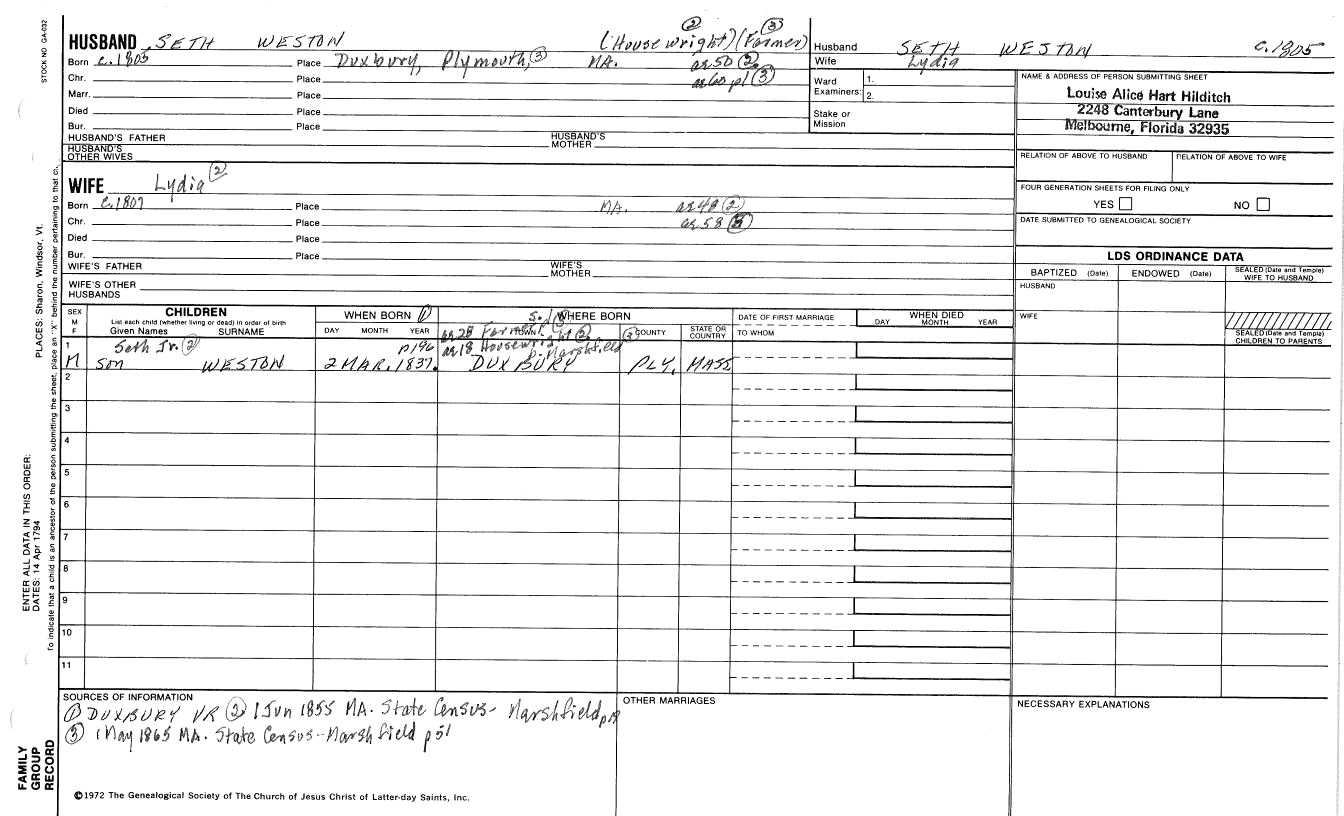 STOCK NO GA-032
HUSBAND SETH WESTON (Housewright) ② (Farmer) ③
Born c.1805 Place Duxbury, Plymouth, ③ MA. ae 50 ②
Chr. Place ae 60 p1 ③
Marr. Place
Died Place
Bur. Place
HUSBAND'S FATHER HUSBAND'S MOTHER
HUSBAND'S OTHER WIVES
Husband SETH WESTON c.1805
Wife Lydia
Ward Examiners: 1. 2.
Stake or Mission
NAME & ADDRESS OF PERSON SUBMITTING SHEET
Louise Alice Hart Hilditch
2248 Canterbury Lane
Melbourne, Florida 32935
RELATION OF ABOVE TO HUSBAND RELATION OF ABOVE TO WIFE
FOUR GENERATION SHEETS FOR FILING ONLY
YES NO
DATE SUBMITTED TO GENEALOGICAL SOCIETY
WIFE Lydia ②
Born c.1807 Place MA. ae 48 ②
Chr. Place ae 58 ③
Died Place
Bur. Place
WIFE'S FATHER WIFE'S MOTHER
WIFE'S OTHER HUSBANDS
LDS ORDINANCE DATA
BAPTIZED (Date) ENDOWED (Date) SEALED (Date and Temple) WIFE TO HUSBAND
HUSBAND
WIFE
SEALED (Date and Temple) CHILDREN TO PARENTS
SEX M F
CHILDREN
List each child (whether living or dead) in order of birth
Given Names SURNAME
WHEN BORN ①
DAY MONTH YEAR
S. WHERE BORN
TOWN COUNTY STATE OR COUNTRY
DATE OF FIRST MARRIAGE
TO WHOM
WHEN DIED
DAY MONTH YEAR
ae 28 Farmer ③
1 Seth Jr. ② p196 ae 18 Housewright ② b. Marshfield
M son WESTON 2 MAR. 1837. DUXBURY PLY. MASS
2
3
4
5
6
7
8
9
10
11
SOURCES OF INFORMATION
① DUXBURY VR ② 1 Jun 1855 MA. State Census- Marshfield
③ 1 May 1865 MA. State Census-Marshfield p51
OTHER MARRIAGES
NECESSARY EXPLANATIONS
©1972 The Genealogical Society of The Church of Jesus Christ of Latter-day Saints, Inc.
PLACES: Sharon, Windsor, Vt.
ENTER ALL DATA IN THIS ORDER:
DATES: 14 Apr 1794
To indicate that a child is an ancestor of the person submitting the sheet, place an "X" behind the number pertaining to that c.
FAMILY GROUP RECORD